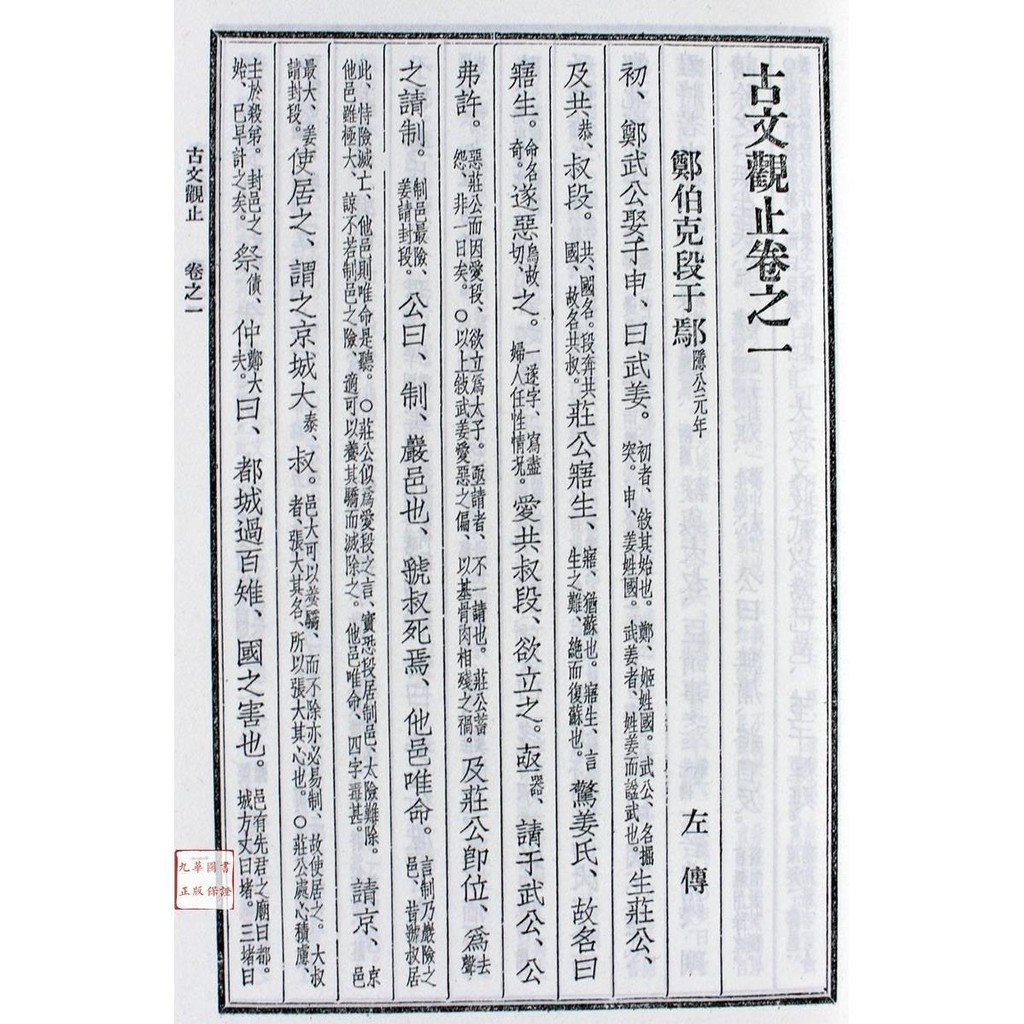 古文觀止卷之一
鄭伯克段于鄢 隱公元年 左傳
初、鄭武公娶于申、曰武姜。初者、敘其始也。鄭、姬姓國。武公、名掘突。申、姜姓國。武姜者、姓姜而謚武也。生莊公、
及共恭、叔段。共、國名。段奔共國、故名共叔。莊公寤生、寤、猶蘇也。寤生、言生之難、絕而復蘇也。驚姜氏、故名曰
寤生。命名奇。遂惡烏故切、之。一遂字、寫盡婦人任性情況。愛共叔段、欲立之。亟器、請于武公、公
弗許。惡莊公而因愛段、欲立爲太子。亟請者、不一請也。莊公蓄怨、非一日矣。○以上敍武姜愛惡之偏、以基骨肉相殘之禍。及莊公卽位、爲去聲
之請制。制邑最險、姜請封段。公曰、制、巖邑也、虢叔死焉、他邑唯命。言制乃巖險之邑、昔虢叔居
此、恃險滅亡、他邑則唯命是聽。○莊公似爲愛段之言、實恐段居制邑、太險難除。他邑雖極大、諒不若制邑之險、適可以養其驕而滅除之。他邑唯命、四字毒甚。請京、京邑
最大、姜請封段。使居之、謂之京城大泰、叔。邑大可以養驕、而不除亦必易制、故使居之。大叔者、張大其名、所以張大其心也。○莊公處心積慮、
主於殺弟。封邑之始、已早計之矣。祭債、仲鄭大夫。曰、都城過百雉、國之害也。邑有先君之廟曰都。城方丈曰堵。三堵曰
古文觀止 卷之一
九華圖書
正版保證